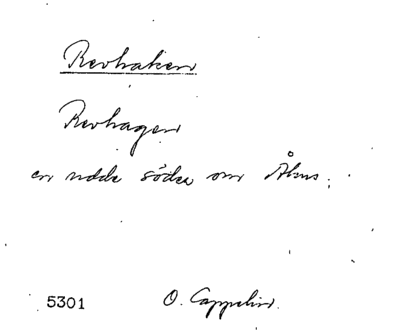 Revhaken
Revhagen
en udde söder om Åhus.
5301 O. Cappelin.